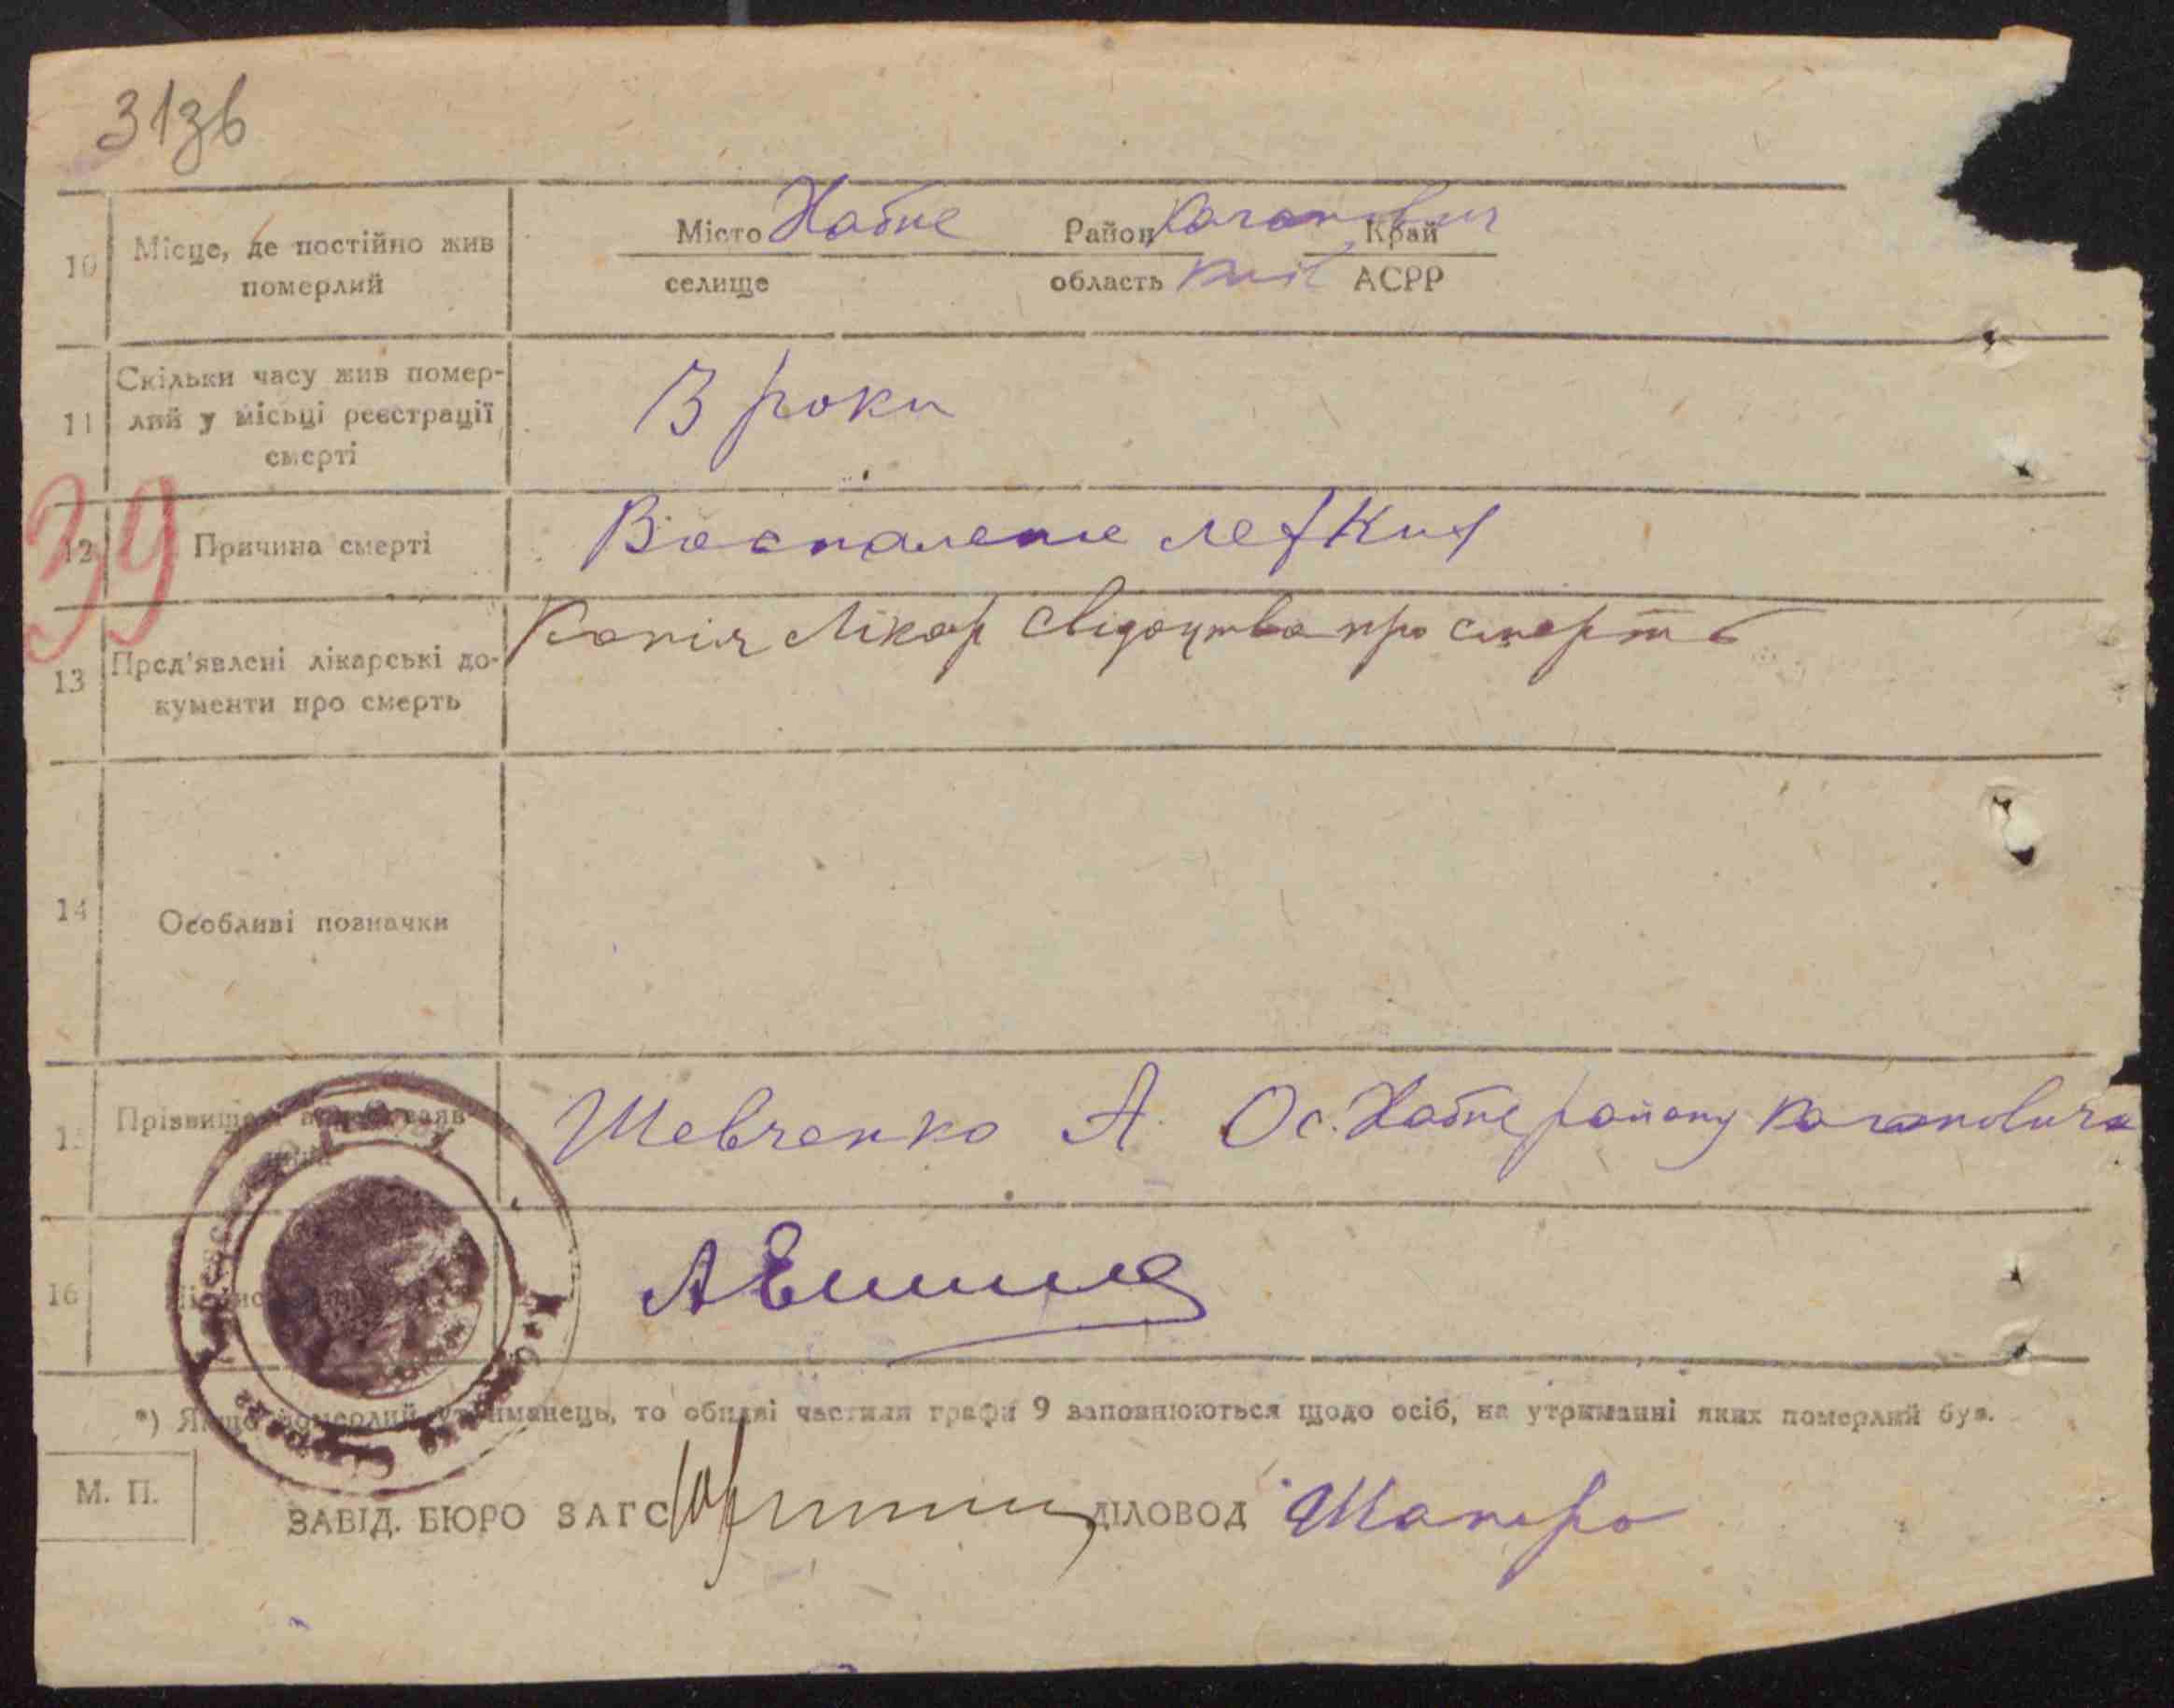 31зв
10 Місце, де постійно жив померлий
Місто Хабне Район Каганович Край
селище область Київ АСРР
11 Скільки часу жив помер-
лий у місьці реєстрації
смерті
3 роки
39
12 Причина смерті
Воспаление легких
13 Пред'явлені лікарські до-
кументи про смерть
Копія Лікар свідоцтва про смерть
14 Особливі позначки
15 Прізвище
Шевченко А. Ос. Хабне району Кагановича
16
*) Якщо померлий утриманець, то обидві частини графи 9 заповнюються щодо осіб, на утриманні яких померлий був.
М. П.
ЗАВІД. БЮРО ЗАГС ДІЛОВОД Шапиро